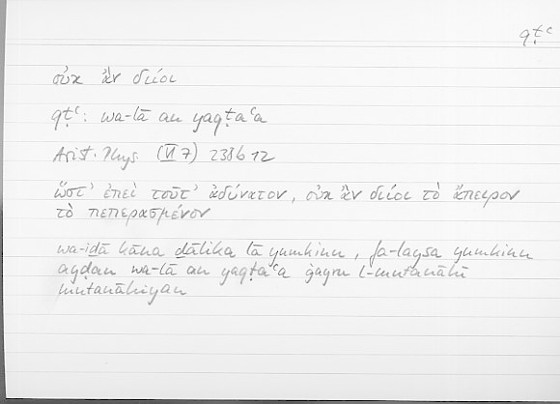 qṭʿ
οὐκ ἂν διίοι
qṭʿ: wa-lā an yaqṭaʿa
Arist. Phys. (VI 7) 238b12
ὥστ’ ἐπεὶ τοῦτ’ ἀδύνατον, οὐκ ἂν διίοι τὸ ἄπειρον
τὸ πεπερασμένον
wa-iḏā kāna ḏālika lā yumkinu, fa-laysa yumkinu
ayḍan wa-lā an yaqṭaʿa ġayru l-mutanāhī
mutanāhiyan